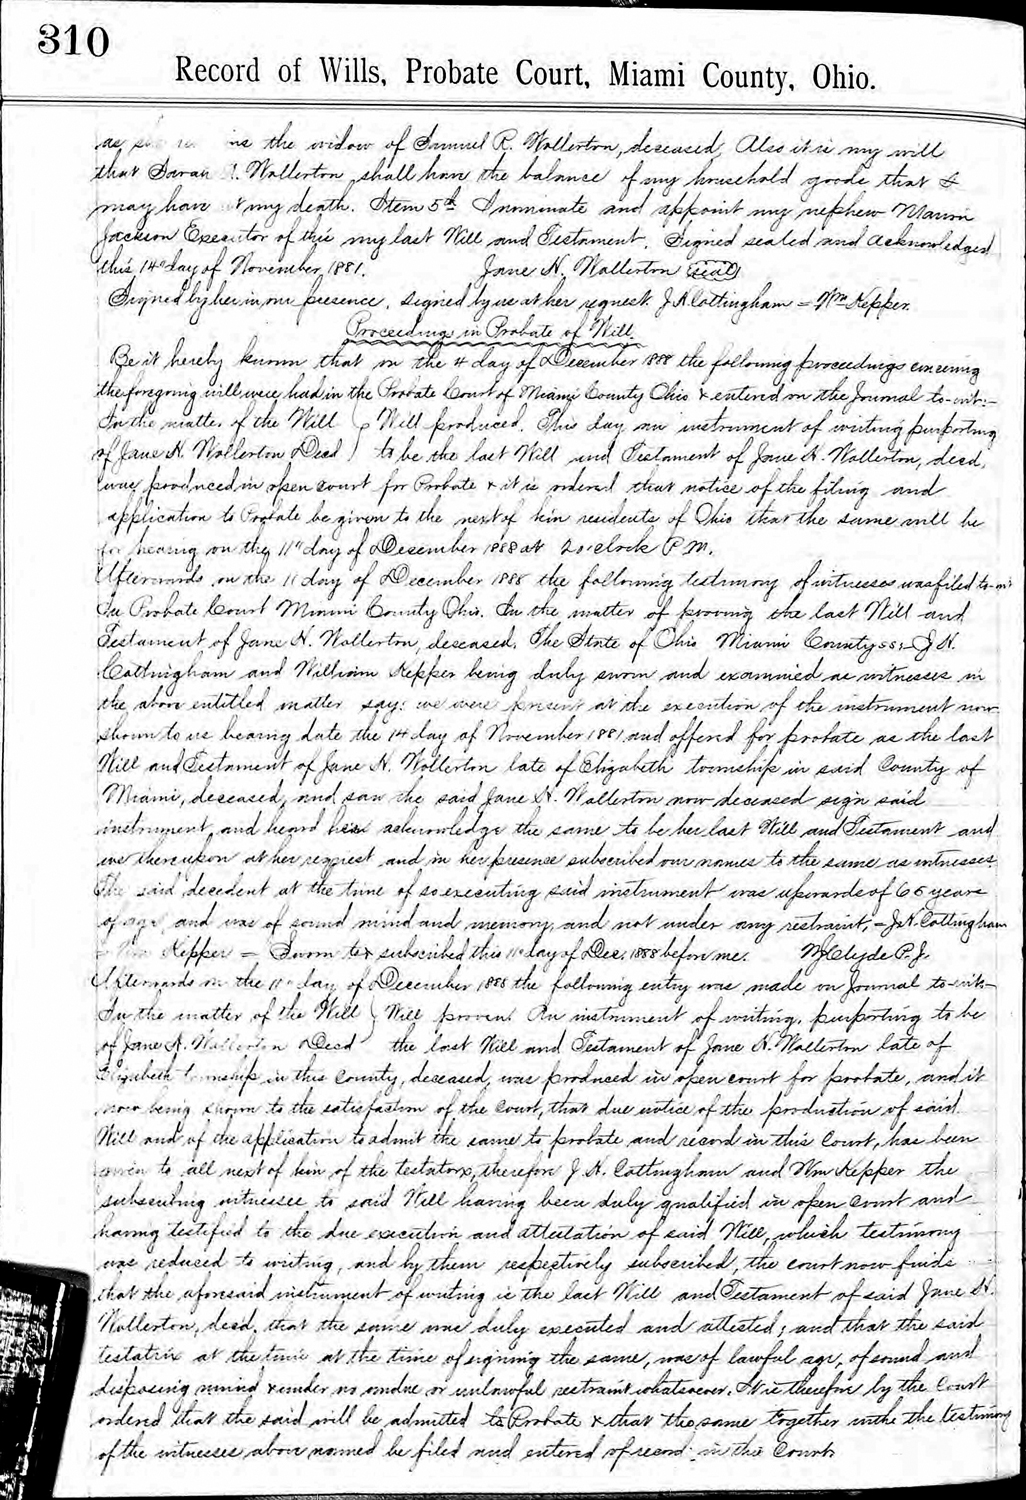 310
Record of Wills, Probate Court, Miami County, Ohio.
as she the widow of Samuel R. Wollerton, deceased, Also it is my will
that Sarah A. Wollerton shall have the balance of my household goods that I
may have at my death. Item 5th I nominate and appoint my nephew Marion
Jackson Executor of this my last Will and Testament. Signed sealed and acknowledged
this 14th day of November 1881. Jane H. Wollerton (seal)
Signed by her in our presence, signed by us at her request. J H Cottingham = Wm Kepper.
Proceedings in Probate of Will.
Be it hereby known that on the 4 day of December 1888 the following proceedings concerning
the foregoing will were had in the Probate Court of Miami County Ohio & entered on the Journal to-wit:-
In the matter of the Will } Will produced. This day an instrument of writing purporting
of Jane H. Wollerton Decd } to be the last Will and Testament of Jane H. Wollerton, decd,
was produced in open court for Probate & it is ordered that notice of the filing and
application to Probate be given to the next of kin residents of Ohio that the same will be
for hearing on the 11th day of December 1888 at 2 o'clock P.M.
Afterwards on the 11 day of December 1888 the following testimony of witnesses was filed to-wit
In Probate Court Miami County Ohio. In the matter of proving the last Will and
Testament of Jane H. Wollerton, deceased. The State of Ohio Miami County ss; J H.
Cottingham and William Kepper being duly sworn and examined as witnesses in
the above entitled matter say: we were present at the execution of the instrument now
shown to us bearing date the 14 day of November 1881 and offered for probate as the last
Will and Testament of Jane H. Wollerton late of Elizabeth township in said County of
Miami, deceased, and saw the said Jane H. Wollerton now deceased sign said
instrument, and heard her acknowledge the same to be her last Will and Testament and
we thereupon at her request and in her presense subscribed our names to the same as witnesses.
The said decedent at the time of so executing said instrument was upwards of 65 years
of age, and was of sound mind and memory, and not under any restraint, = J H. Cottingham
= Wm Kepper = Sworn to & subscribed this 11th day of Dec. 1888 before me. Clyde P. J.
Afterwards on the 11th day of December 1888 the following entry was made on Journal to-wit:-
In the matter of the Will } Will proven. An instrument of writing, purporting to be
of Jane H. Wollerton Decd the last Will and Testament of Jane H. Wollerton late of
Elizabeth township in this County, deceased, was produced in open court for probate, and it
now being shown to the satisfaction of the court, that due notice of the production of said
Will and of the application to admit the same to probate and record in this Court, has been
given to all next of kin of the testatorx, therefore J H. Cottingham and Wm Kepper the
subscribing witnesses to said Will having been duly qualified in open court and
having testified to the due execution and attestation of said Will, which testimony
was reduced to writing, and by them respectively subscribed, the court now finds
that the aforesaid instrument of writing is the last Will and Testament of said Jane H.
Wollerton, decd, that the same was duly executed and attested; and that the said
testatrix at the time at the time of signing the same, was of lawful age, of sound and
disposing mind & under no undue or unlawful restraint whatsoever. It is therefore by the Court
ordered that the said will be admitted to Probate & that the same together with the testimony
of the witnesses above named be filed and entered of record in the Court.